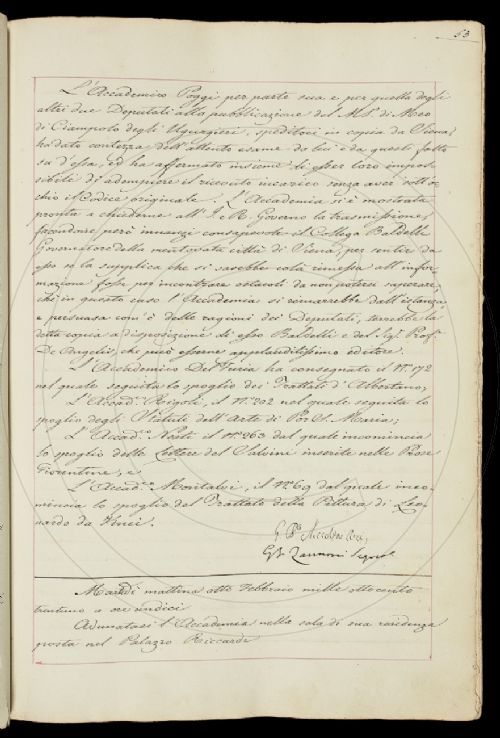 63
L'Accademico Poggi per parte sua e per quella degli
altri due Deputati alla pubblicazione del MS. di Meo
di Ciampolo degli Ugurgieri, speditoci in copia da Siena,
ha dato contezza dell'attento esame da lui e da questi fatto
su d'essa, ed ha affermato insieme di esser loro impos-
sibile di adempiere il ricevuto incarico senza aver sott'oc-
chio il Codice originale. L'Accademia si è mostrata
pronta a chiederne all'I. e R. Governo la trasmissione,
facendone però innanzi consapevole il Collega Baldelli
Governatore della mentovata città di Siena, per sentir da
esso se la supplica che si sarebbe colà rimessa all'infor-
mazione fosse per incontrare ostacoli da non potersi superare;
chè in questo caso l'Accademia si rimarrebbe dall'istanza,
e persuasa com'è delle ragioni dei Deputati, terrebbe la
detta copia a disposizione di esso Baldelli e del Sig. Prof.
De Angelis, che può esserne applauditissimo editore.
L'Accademico Del Furia ha consegnato il N.º 172
nel quale seguita lo spoglio dei Trattati d'Albertano;
L'Accad.º Rigoli, il N.º 202 nel quale seguita lo
spoglio degli Statuti dell'Arte di Por S. Maria;
L'Accad.co il N.º 263 dal quale incomincia
lo spoglio delle Lettere del Salvini inserite nelle Prose
Fiorentine; e
L'Accad.co Montalvi, il N.º 69 dal quale inco-
mincia lo spoglio del Trattato della Pittura di Leo-
nardo da Vinci.
G. Bta Niccolini
G.B. Zannoni Segret.
Martedì mattina otto Febbraio mille ottocento
trentuno a ore undici
Adunatasi l'Accademia nella sala di sua residenza
posta nel Palazzo Riccardi